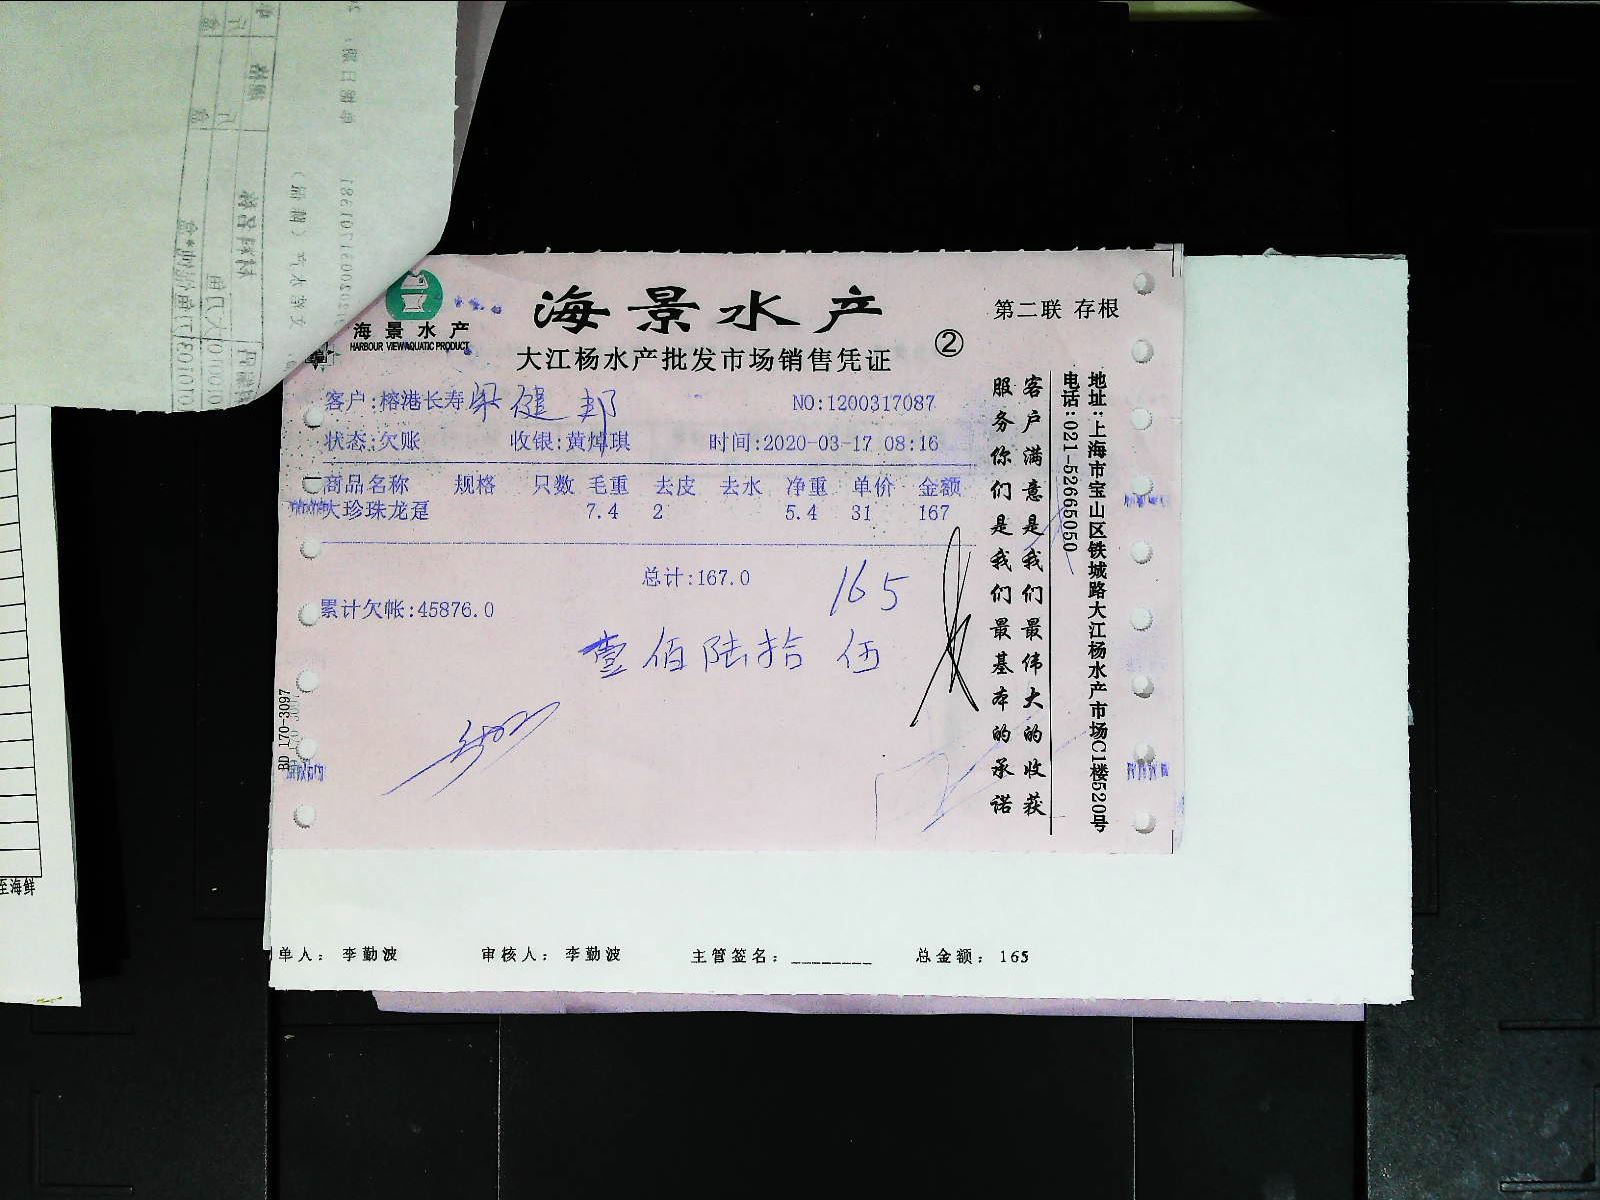 海景水产
HARBOUR VIEW AQUATIC PRODUCT
海景水产
大江杨水产批发市场销售凭证
②
第二联 存根
客户:榕港长寿 梁健邦
NO:1200317087
状态:欠账 收银:黄焯琪 时间:2020-03-17 08:16
商品名称 规格 只数 毛重 去皮 去水 净重 单价 金额
大珍珠龙趸 7.4 2 5.4 31 167
总计:167.0
165
累计欠帐:45876.0
壹佰陆拾伍
客户满意是我们最伟大的收获
服务你们是我们最基本的承诺
地址:上海市宝山区铁城路大江杨水产市场C1楼520号
电话:021-52665050
BD 170-3097
单人: 李勤波 审核人: 李勤波 主管签名:________ 总金额: 165
至海鲜